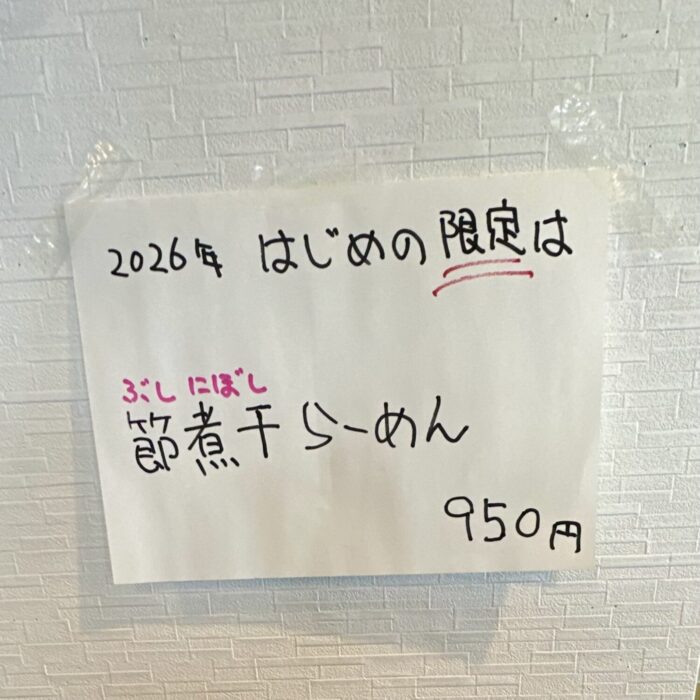 2026年 はじめの限定は
ぶし にぼし
節煮干らーめん
950円